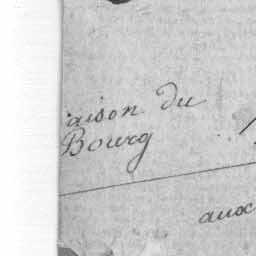 aison du
Bourg
aux